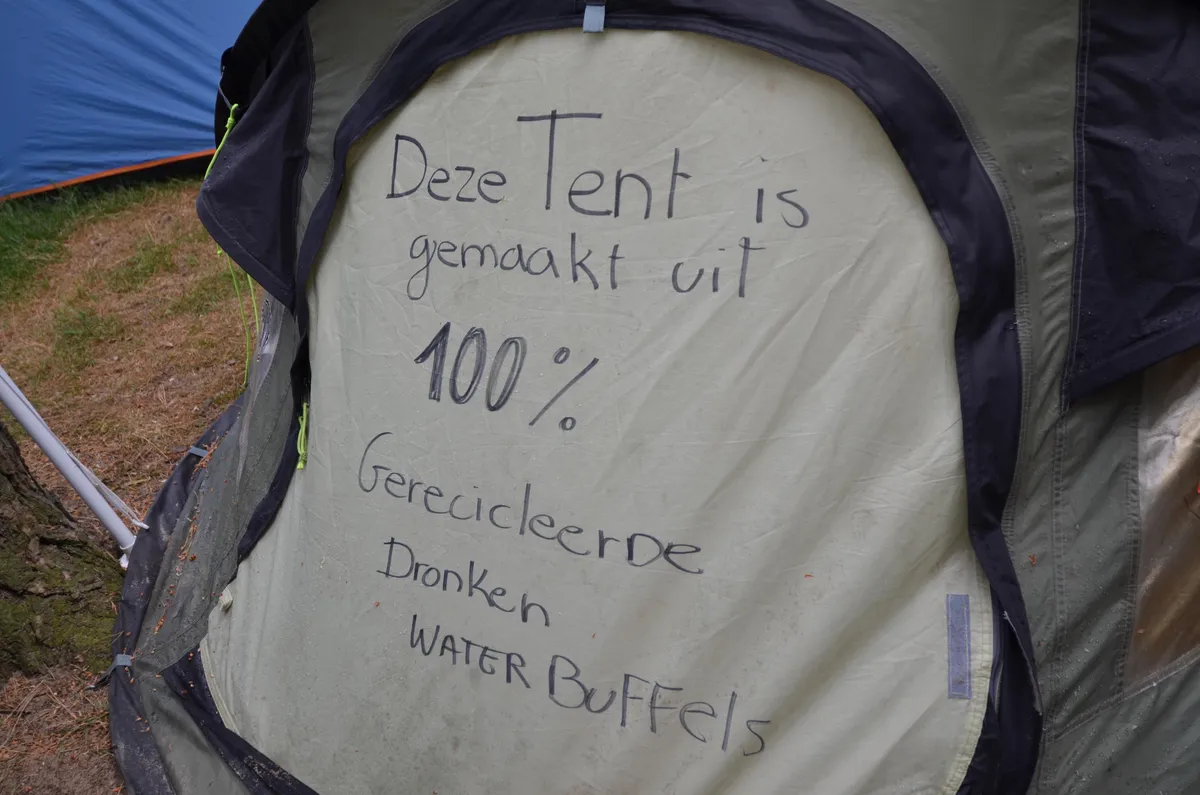 Deze Tent is
gemaakt uit
100%
Gerecicleerde
Dronken
WATER BuFFels